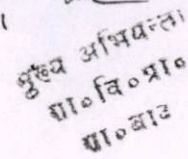 मुख्य अभियन्ता
ग्रा०वि०प्रा०
ग्रा०बाट